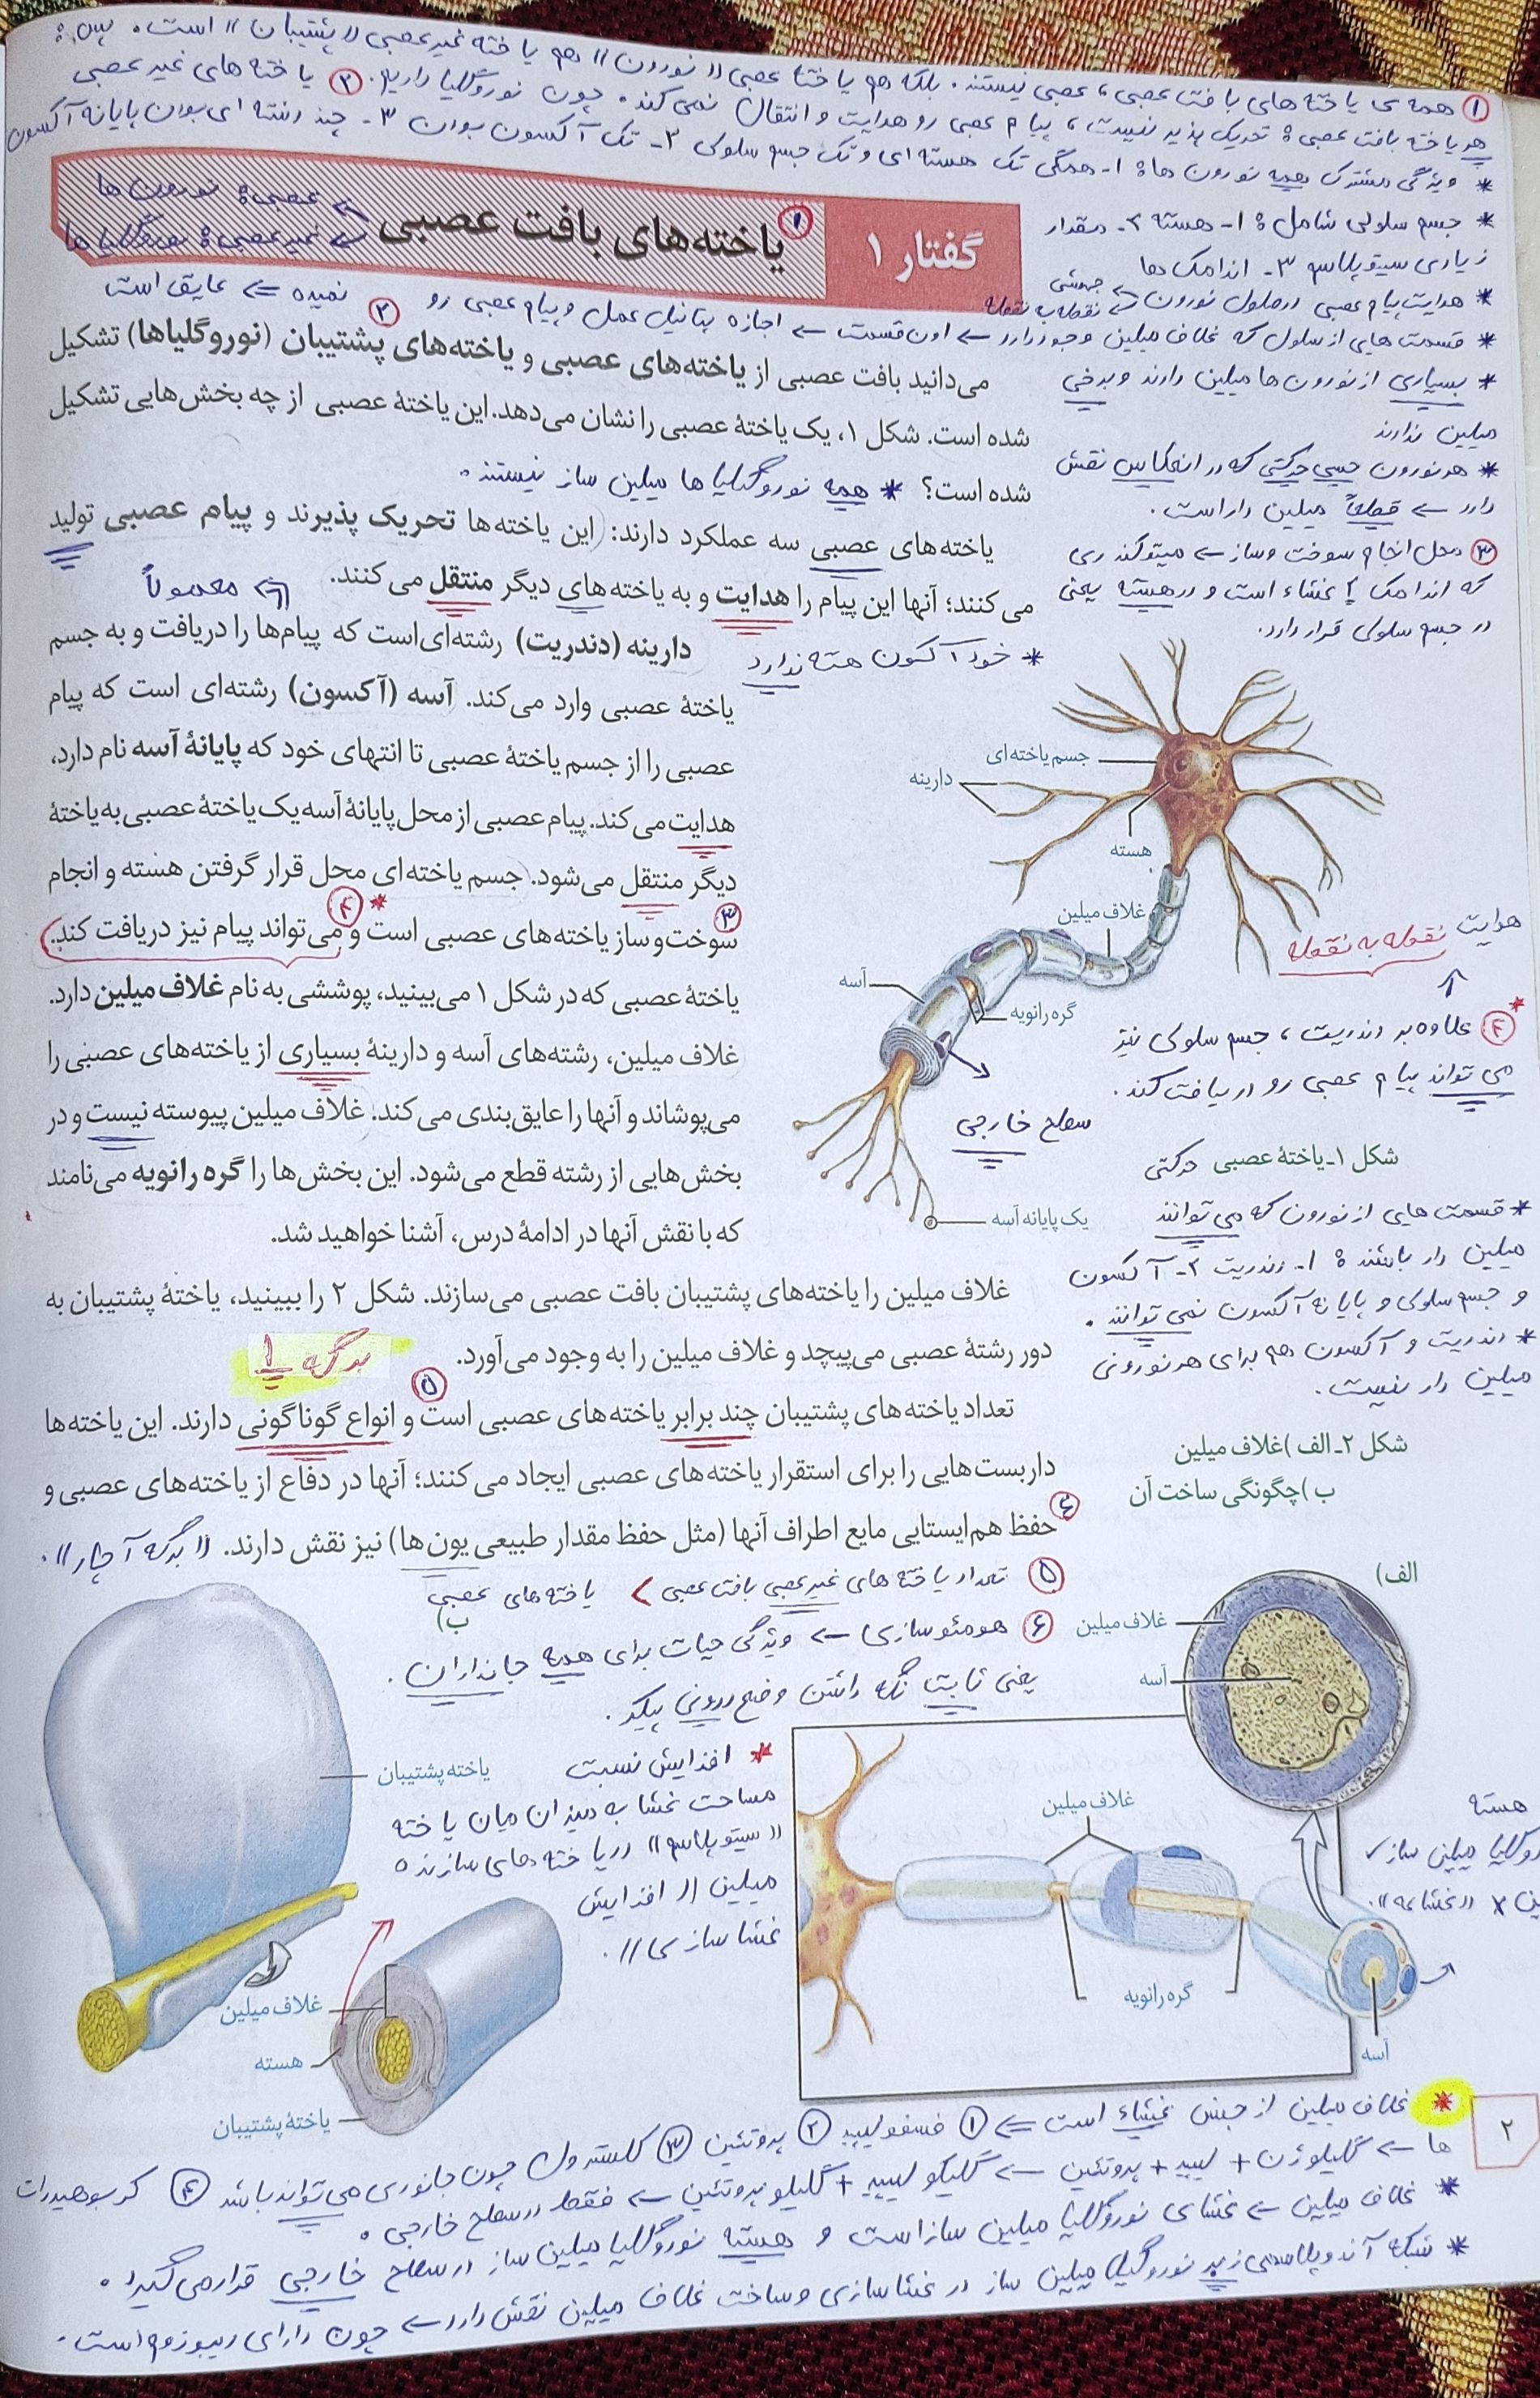 ① همه ی یاخته های بافت عصبی، عصبی نیستند. بلکه هم یاخته عصبی «نورون» هم یاخته غیر عصبی «پشتیبان» است. پس:
هر یاخته بافت عصبی: تحریک پذیر نیست، پیام عصبی رو هدایت و انتقال نمی کند. چون نوروگلیا داریم. ② یاخته های غیر عصبی
* ویژگی مشترک همه نورون ها: ۱- همگی تک هسته ای و تک جسم سلولی ۲- تک آکسون بودن ۳- چند رشته ای بودن پایانه آکسون
* جسم سلولی شامل: ۱- هسته ۲- مقدار
زیادی سیتوپلاسم ۳- اندامک ها
* هدایت پیام عصبی در طول نورون ← جهشی
نقطه به نقطه
گفتار ۱
① یاخته‌های بافت عصبی
← عصبی: نورون ها
← غیر عصبی: نوروگلیا ها
* قسمت هایی از سلول که غلاف میلین وجود دارد ← اون قسمت ← اجازه پتانسیل عمل و پیام عصبی رو نمیده ⇐ عایق است
* بسیاری از نورون ها میلین دارند و برخی
میلین ندارند
* هر نورون حسی حرکتی که در انعکاس نقش
دارد ← قطعاً میلین دار است.
③ محل انجام سوخت و ساز ← میتوکندری
که اندامک با غشاء است و در هسته یعنی
در جسم سلولی قرار دارد.
می‌دانید بافت عصبی از یاخته‌های عصبی و یاخته‌های پشتیبان (نوروگلیاها) تشکیل ②
شده است. شکل ۱، یک یاختهٔ عصبی را نشان می‌دهد. این یاختهٔ عصبی از چه بخش‌هایی تشکیل
شده است؟ * همه نوروگلیا ها میلین ساز نیستند.
یاخته‌های عصبی سه عملکرد دارند: این یاخته‌ها تحریک پذیرند و پیام عصبی تولید
می کنند؛ آنها این پیام را هدایت و به یاخته‌های دیگر منتقل می کنند.
معمولاً
* خود آکسون هسته ندارد
دارینه (دندریت) رشته‌ای‌است که پیام‌ها را دریافت و به جسم
یاختهٔ عصبی وارد می‌کند. آسه (آکسون) رشته‌ای است که پیام
عصبی را از جسم یاختهٔ عصبی تا انتهای خود که پایانهٔ آسه نام دارد،
هدایت می‌کند. پیام عصبی از محل پایانهٔ آسه یک یاختهٔ عصبی به یاختهٔ
دیگر منتقل می‌شود. جسم یاخته‌ای محل قرار گرفتن هسته و انجام
③ سوخت‌وساز یاخته‌های عصبی است و می‌تواند پیام نیز دریافت کند. ④ *
یاختهٔ عصبی که در شکل ۱ می‌بینید، پوششی به نام غلاف میلین دارد.
غلاف میلین، رشته‌های آسه و دارینهٔ بسیاری از یاخته‌های عصبی را
می‌پوشاند و آنها را عایق‌بندی می‌کند. غلاف میلین پیوسته نیست و در
بخش‌هایی از رشته قطع می‌شود. این بخش‌ها را گره رانویه می‌نامند
که با نقش آنها در ادامهٔ درس، آشنا خواهید شد.
جسم یاخته‌ای
دارینه
هسته
غلاف میلین
آسه
گره رانویه
سطح خارجی
یک پایانه آسه
هدایت نقطه به نقطه
* ④ علاوه بر دندریت، جسم سلولی نیز
می تواند پیام عصبی رو دریافت کند.
شکل ۱ـ یاختهٔ عصبی حرکتی
* قسمت هایی از نورون که می توانند
میلین دار باشند: ۱- دندریت ۲- آکسون
و جسم سلولی و پایانه آکسون نمی توانند.
* دندریت و آکسون هم برای هر نورونی
میلین دار نیست.
غلاف میلین را یاخته‌های پشتیبان بافت عصبی می‌سازند. شکل ۲ را ببینید، یاختهٔ پشتیبان به
دور رشتهٔ عصبی می‌پیچد و غلاف میلین را به وجود می‌آورد.
برگه ۱
تعداد یاخته‌های پشتیبان چند برابر یاخته‌های عصبی است و انواع گوناگونی دارند. این یاخته‌ها ⑤
داربست‌هایی را برای استقرار یاخته‌های عصبی ایجاد می کنند؛ آنها در دفاع از یاخته‌های عصبی و
⑥ حفظ هم‌ایستایی مایع اطراف آنها (مثل حفظ مقدار طبیعی یون‌ها) نیز نقش دارند. «برگه آچار».
شکل ۲ـ الف )غلاف میلین
ب )چگونگی ساخت آن
⑤ تعداد یاخته های غیر عصبی بافت عصبی > یاخته های عصبی
⑥ هومئوسازی ← ویژگی حیات برای همه جانداران.
یعنی ثابت نگه داشتن وضع درونی پیکر.
* افزایش نسبت
مساحت غشا به میزان میان یاخته
«سیتوپلاسم» در یاخته های سازنده
میلین «افزایش
غشا سازی».
ب)
یاخته پشتیبان
غلاف میلین
هسته
یاختهٔ پشتیبان
الف)
غلاف میلین
آسه
غلاف میلین
گره رانویه
آسه
هسته
میلین ساز ✓
«غشاء»
* غلاف میلین از جنس غشاء است ⇐ ① فسفولیپید ② پروتئین ③ کلسترول چون جانوری می تواند باشد ④ کربوهیدرات
ها ← گلیکوژن + لیپید + پروتئین ← گلیکو لیپید + گلیکوپروتئین ← فقط در سطح خارجی.
* غلاف میلین ← غشای نوروگلیا میلین ساز است و هسته نوروگلیا میلین ساز در سطح خارجی قرار می گیرد.
* شبکه آندوپلاسمی زبر نوروگلیا میلین ساز در غشاسازی و ساخت غلاف میلین نقش دارد ← چون دارای ریبوزوم است.
۲